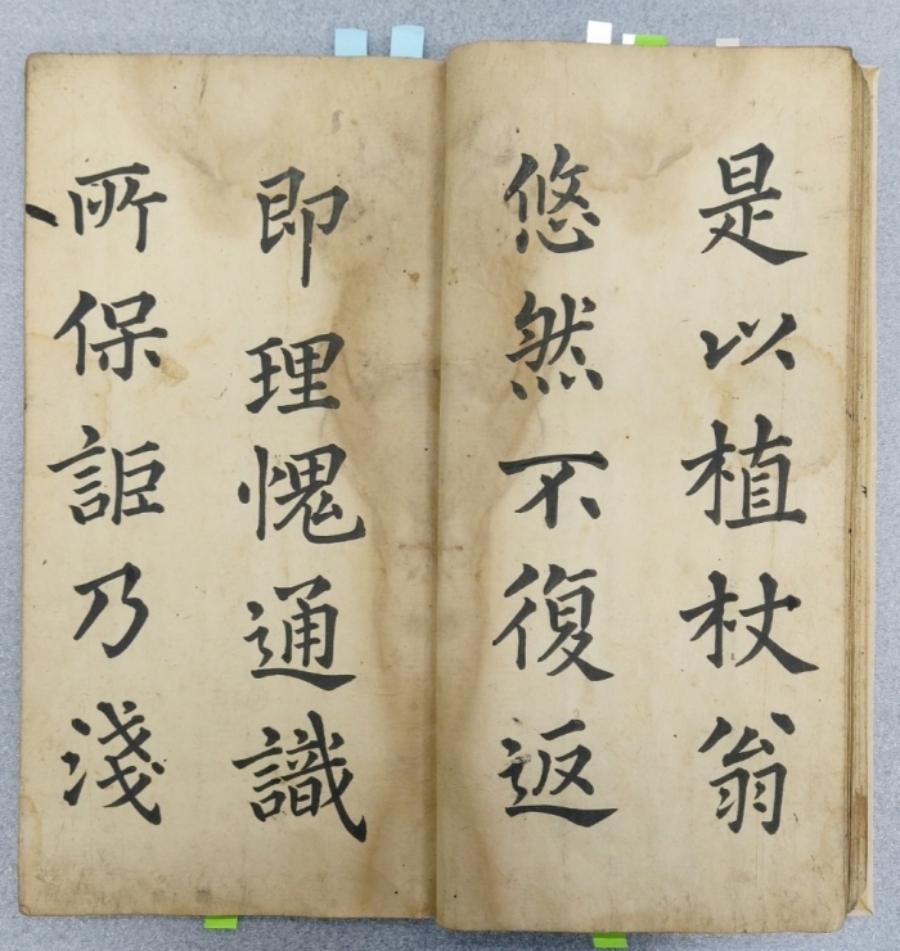 是以植杖翁
悠然不復返
即理愧通識
所保詎乃淺